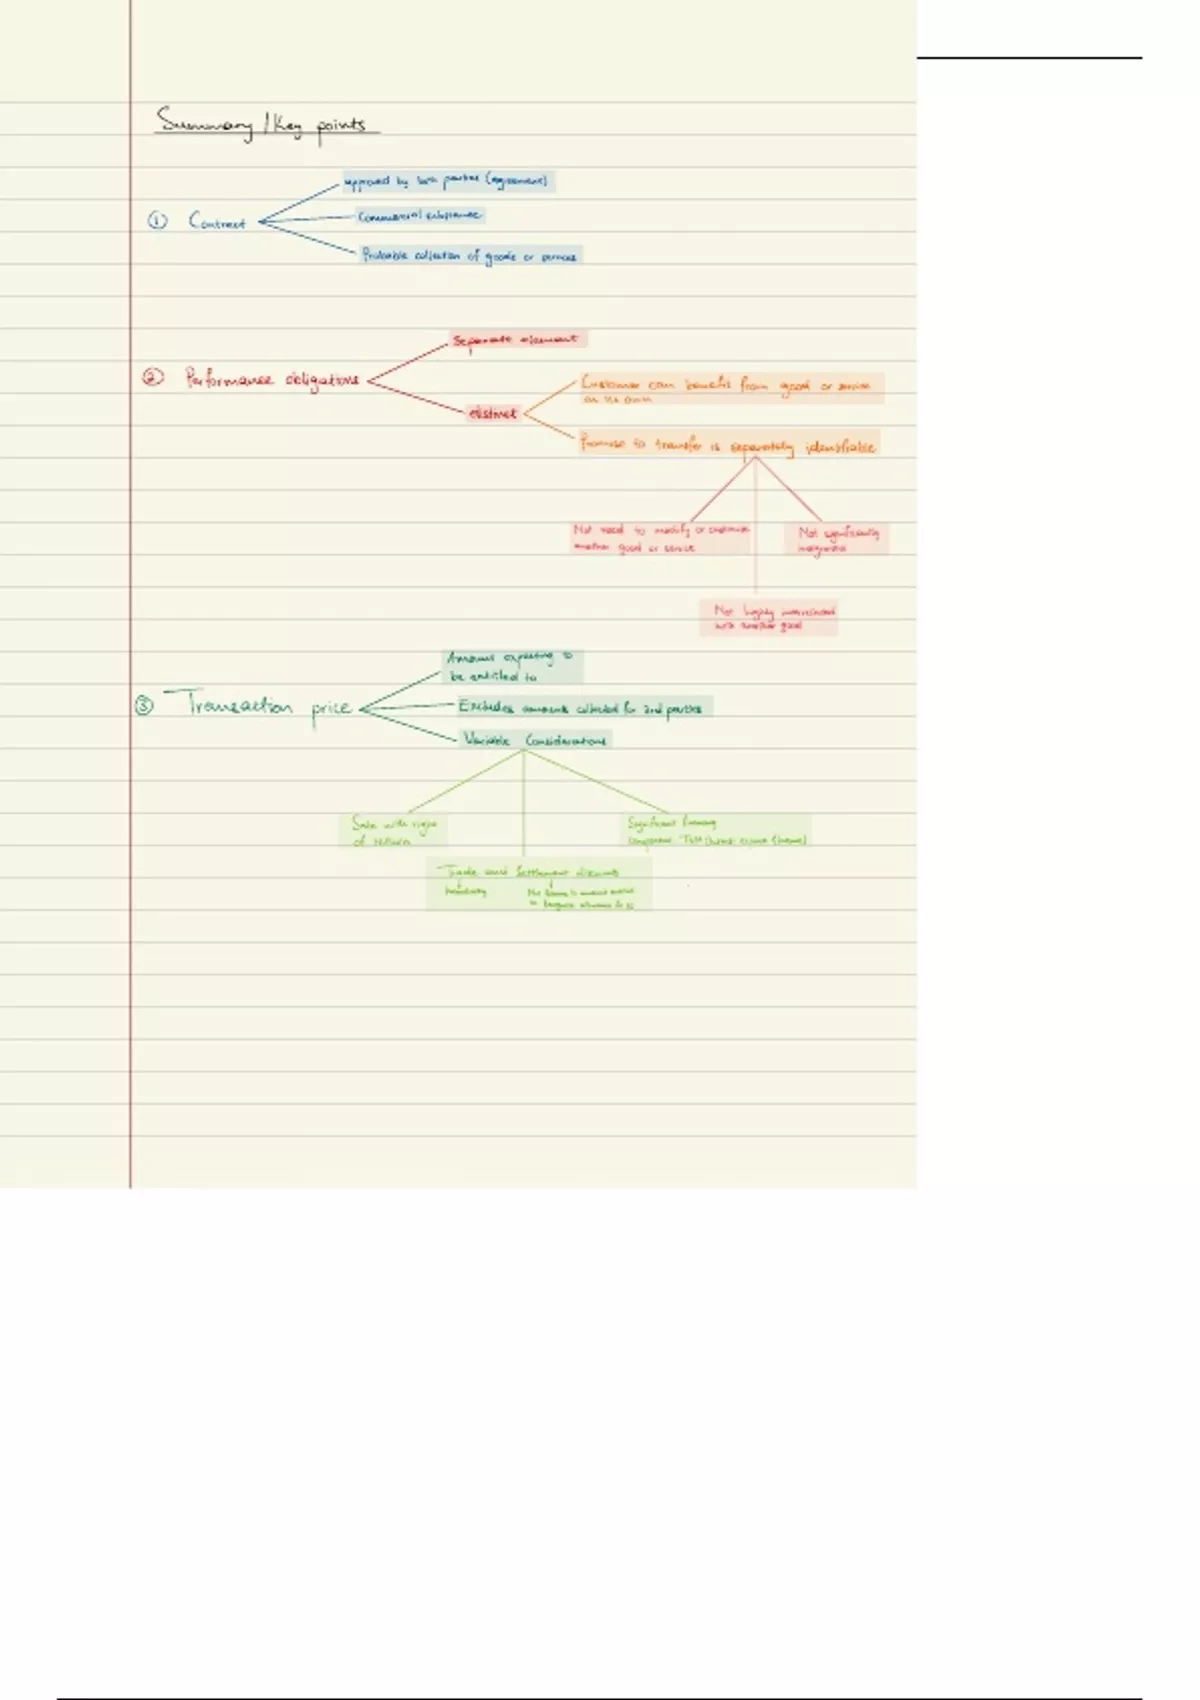 Summary / Key points
approved by both parties (agreement)
① Contract
Commercial substance
Probable collection of goods or services
Separate element
② Performance obligations
distinct
Customer can benefit from good or service
on its own
Promise to transfer is separately identifiable
Not need to modify or customise
another good or service
Not significantly
integrated
Not highly interrelated
with another good
Amount expecting to
be entitled to
③ Transaction price
Excludes amounts collected for 3rd parties
Variable Considerations
Sale with right
of return
Significant financing
component TVM (
- Trade and Settlement discounts